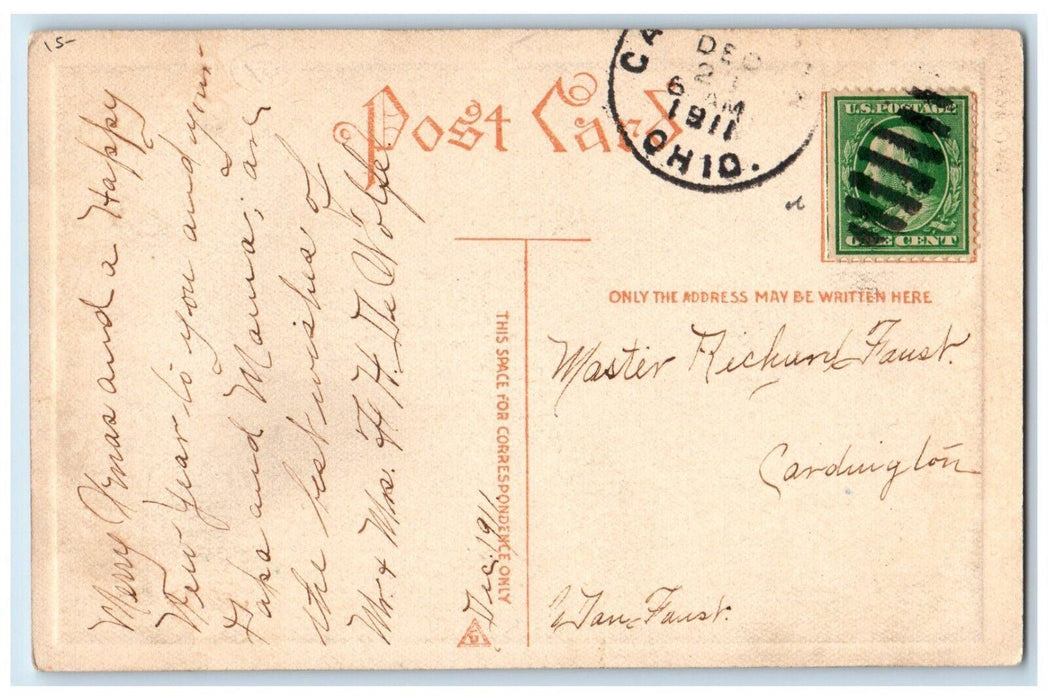 15-
Post Card
CA
DEC
6 AM
1911
OHIO.
U.S. POSTAGE
ONE CENT
Merry Xmas and a Happy
New Year to you and your
Papa and Mama, and
the best wishes of
Mr. & Mrs. F. H. De Wolfe.
Dec. 1911
THIS SPACE FOR CORRESPONDENCE ONLY
ONLY THE ADDRESS MAY BE WRITTEN HERE
Master Richard Faust.
Cardington
Faust.